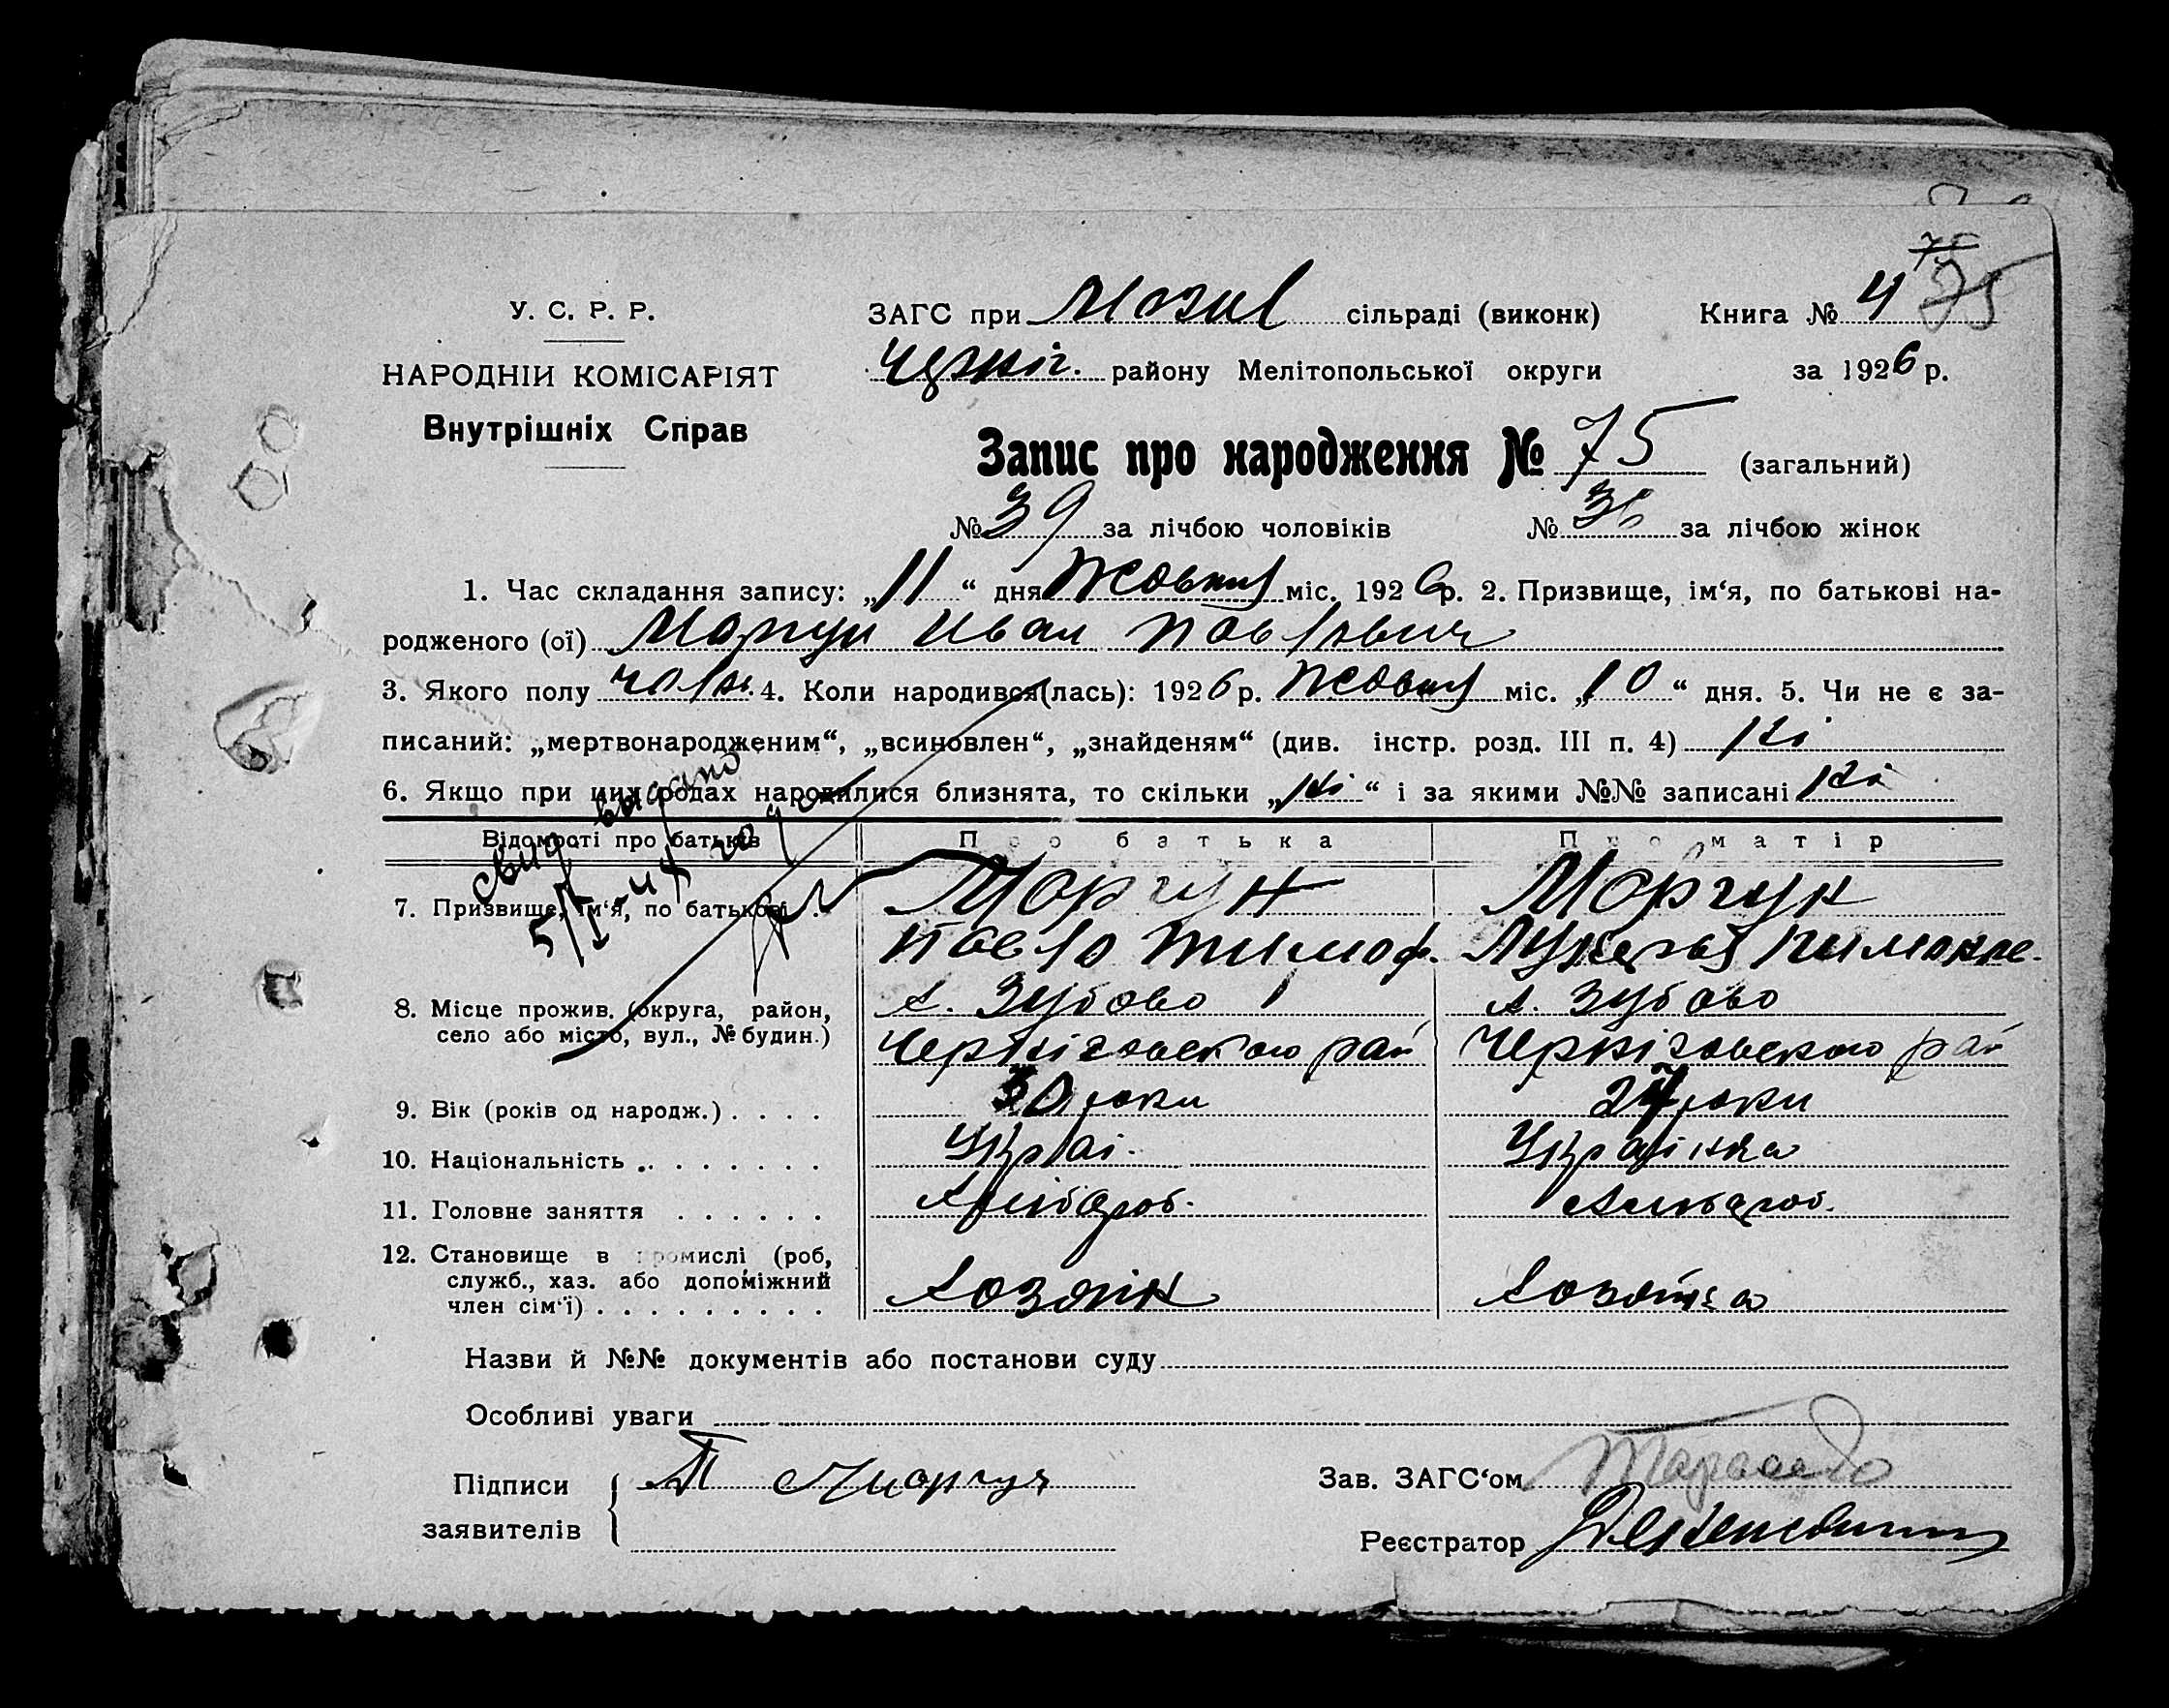 75
У. С. Р. Р.
НАРОДНІЙ КОМІСАРІЯТ
Внутрішніх Справ
ЗАГС при сільраді (виконк) Книга № 4 75
Черніг. району Мелітопольської округи за 1926 р.
Запис про народження № 75 (загальний)
№ 39 за лічбою чоловіків № 36 за лічбою жінок
1. Час складання запису: „11“ дня Жовтня міс. 1926 р. 2. Призвище, ім‘я, по батькові на-
родженого (ої) Моргун Иван Павлович
3. Якого полу чолов. 4. Коли народився(лась): 1926 р. Жовтня міс. „10“ дня. 5. Чи не є за-
писаний: „мертвонародженим“, „всиновлен“, „знайденям“ (див. інстр. розд. III п. 4) Ні
6. Якщо при цих родах народилися близнята, то скільки „Ні“ і за якими №№ записані Ні
Свид. выдано
Відомості про батьків Про батька Про матір
7. Призвище, ім‘я, по батькові . . Моргун Моргун
Павло Тимоф. Лукерья
8. Місце прожив. (округа, район, с. Зубово с. Зубово
село або місто, вул., № будин.) Черніговского рай Черніговского рай
9. Вік (років од народж.) . . . . 30 роки 27 роки
10. Національність . . . . . . . Украі. Украінка
11. Головне заняття . . . . . . Хлібороб. Хлібороб.
12. Становище в промислі (роб,
служб., хаз. або допоміжний Хозяїн Хозяїка
член сім‘ї) . . . . . . . . .
Назви й №№ документів або постанови суду
Особливі уваги
Підписи П Моргун Зав. ЗАГС‘ом
заявителів Реєстратор